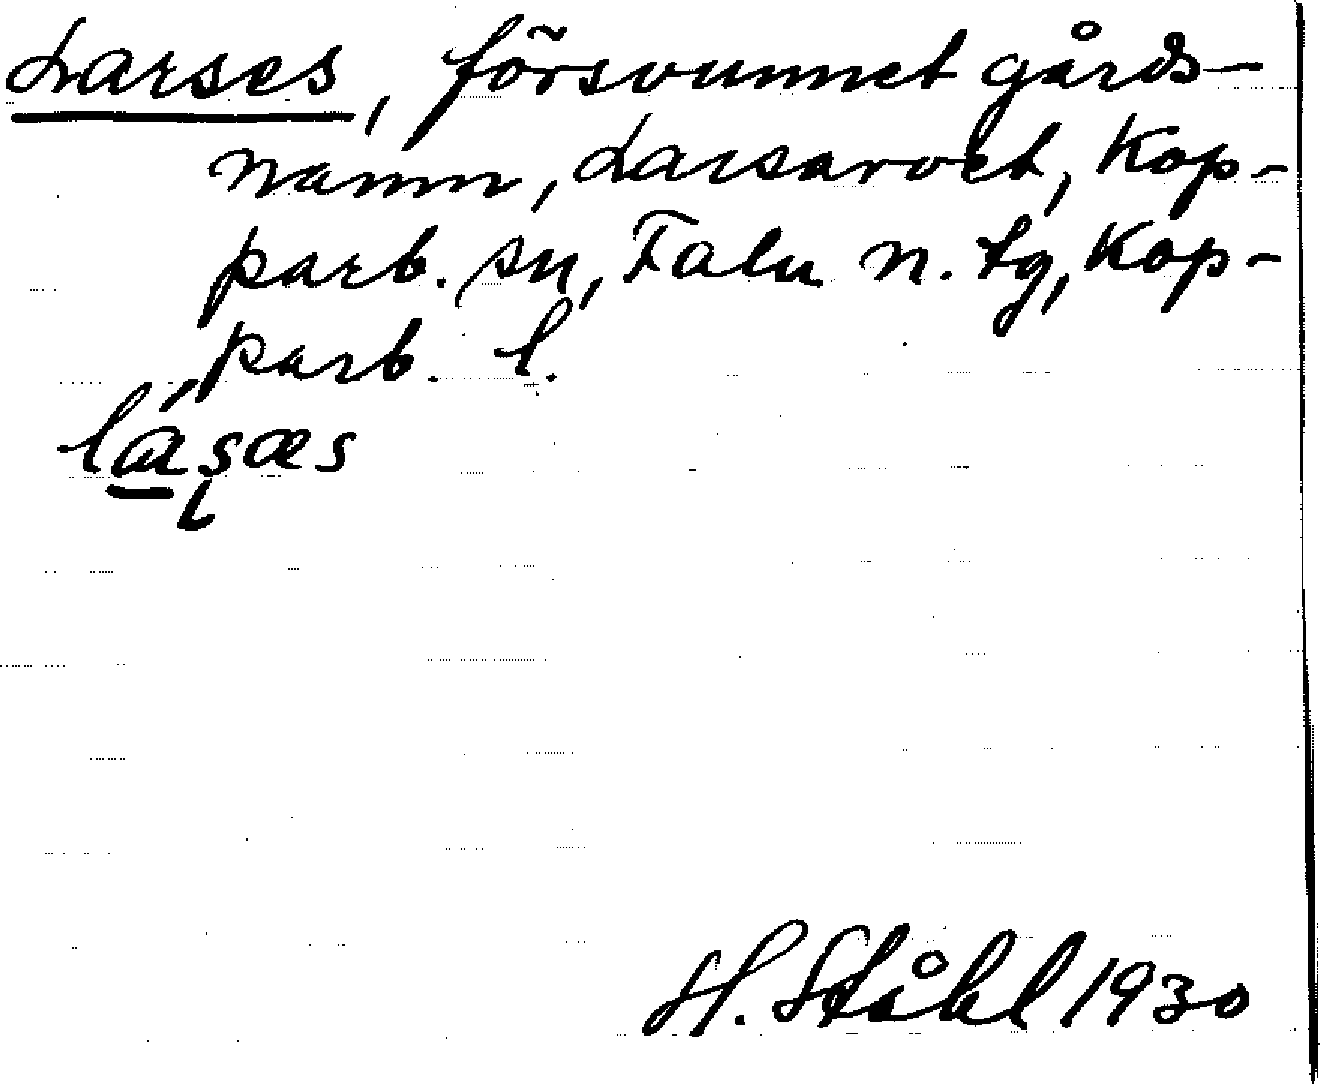 Larses, försvunnet gårds-
namn, Larsarvet, Kop-
parb. sn, Falu n. tg, Kop-
parb. l.
H. Ståhl 1930